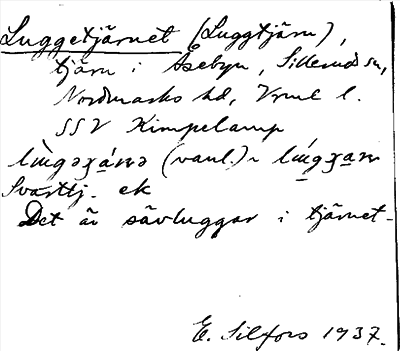 Luggetjärnet (Luggtjärn),
tjärn i Åsebyn, Sillerud sn,
Nordmarks hd, Vrml l.
SSV Kimpelamp
(vanl.) ~
Svarttj. ek
Det är sävluggar i tjärnet.
E. Silfors 1937.